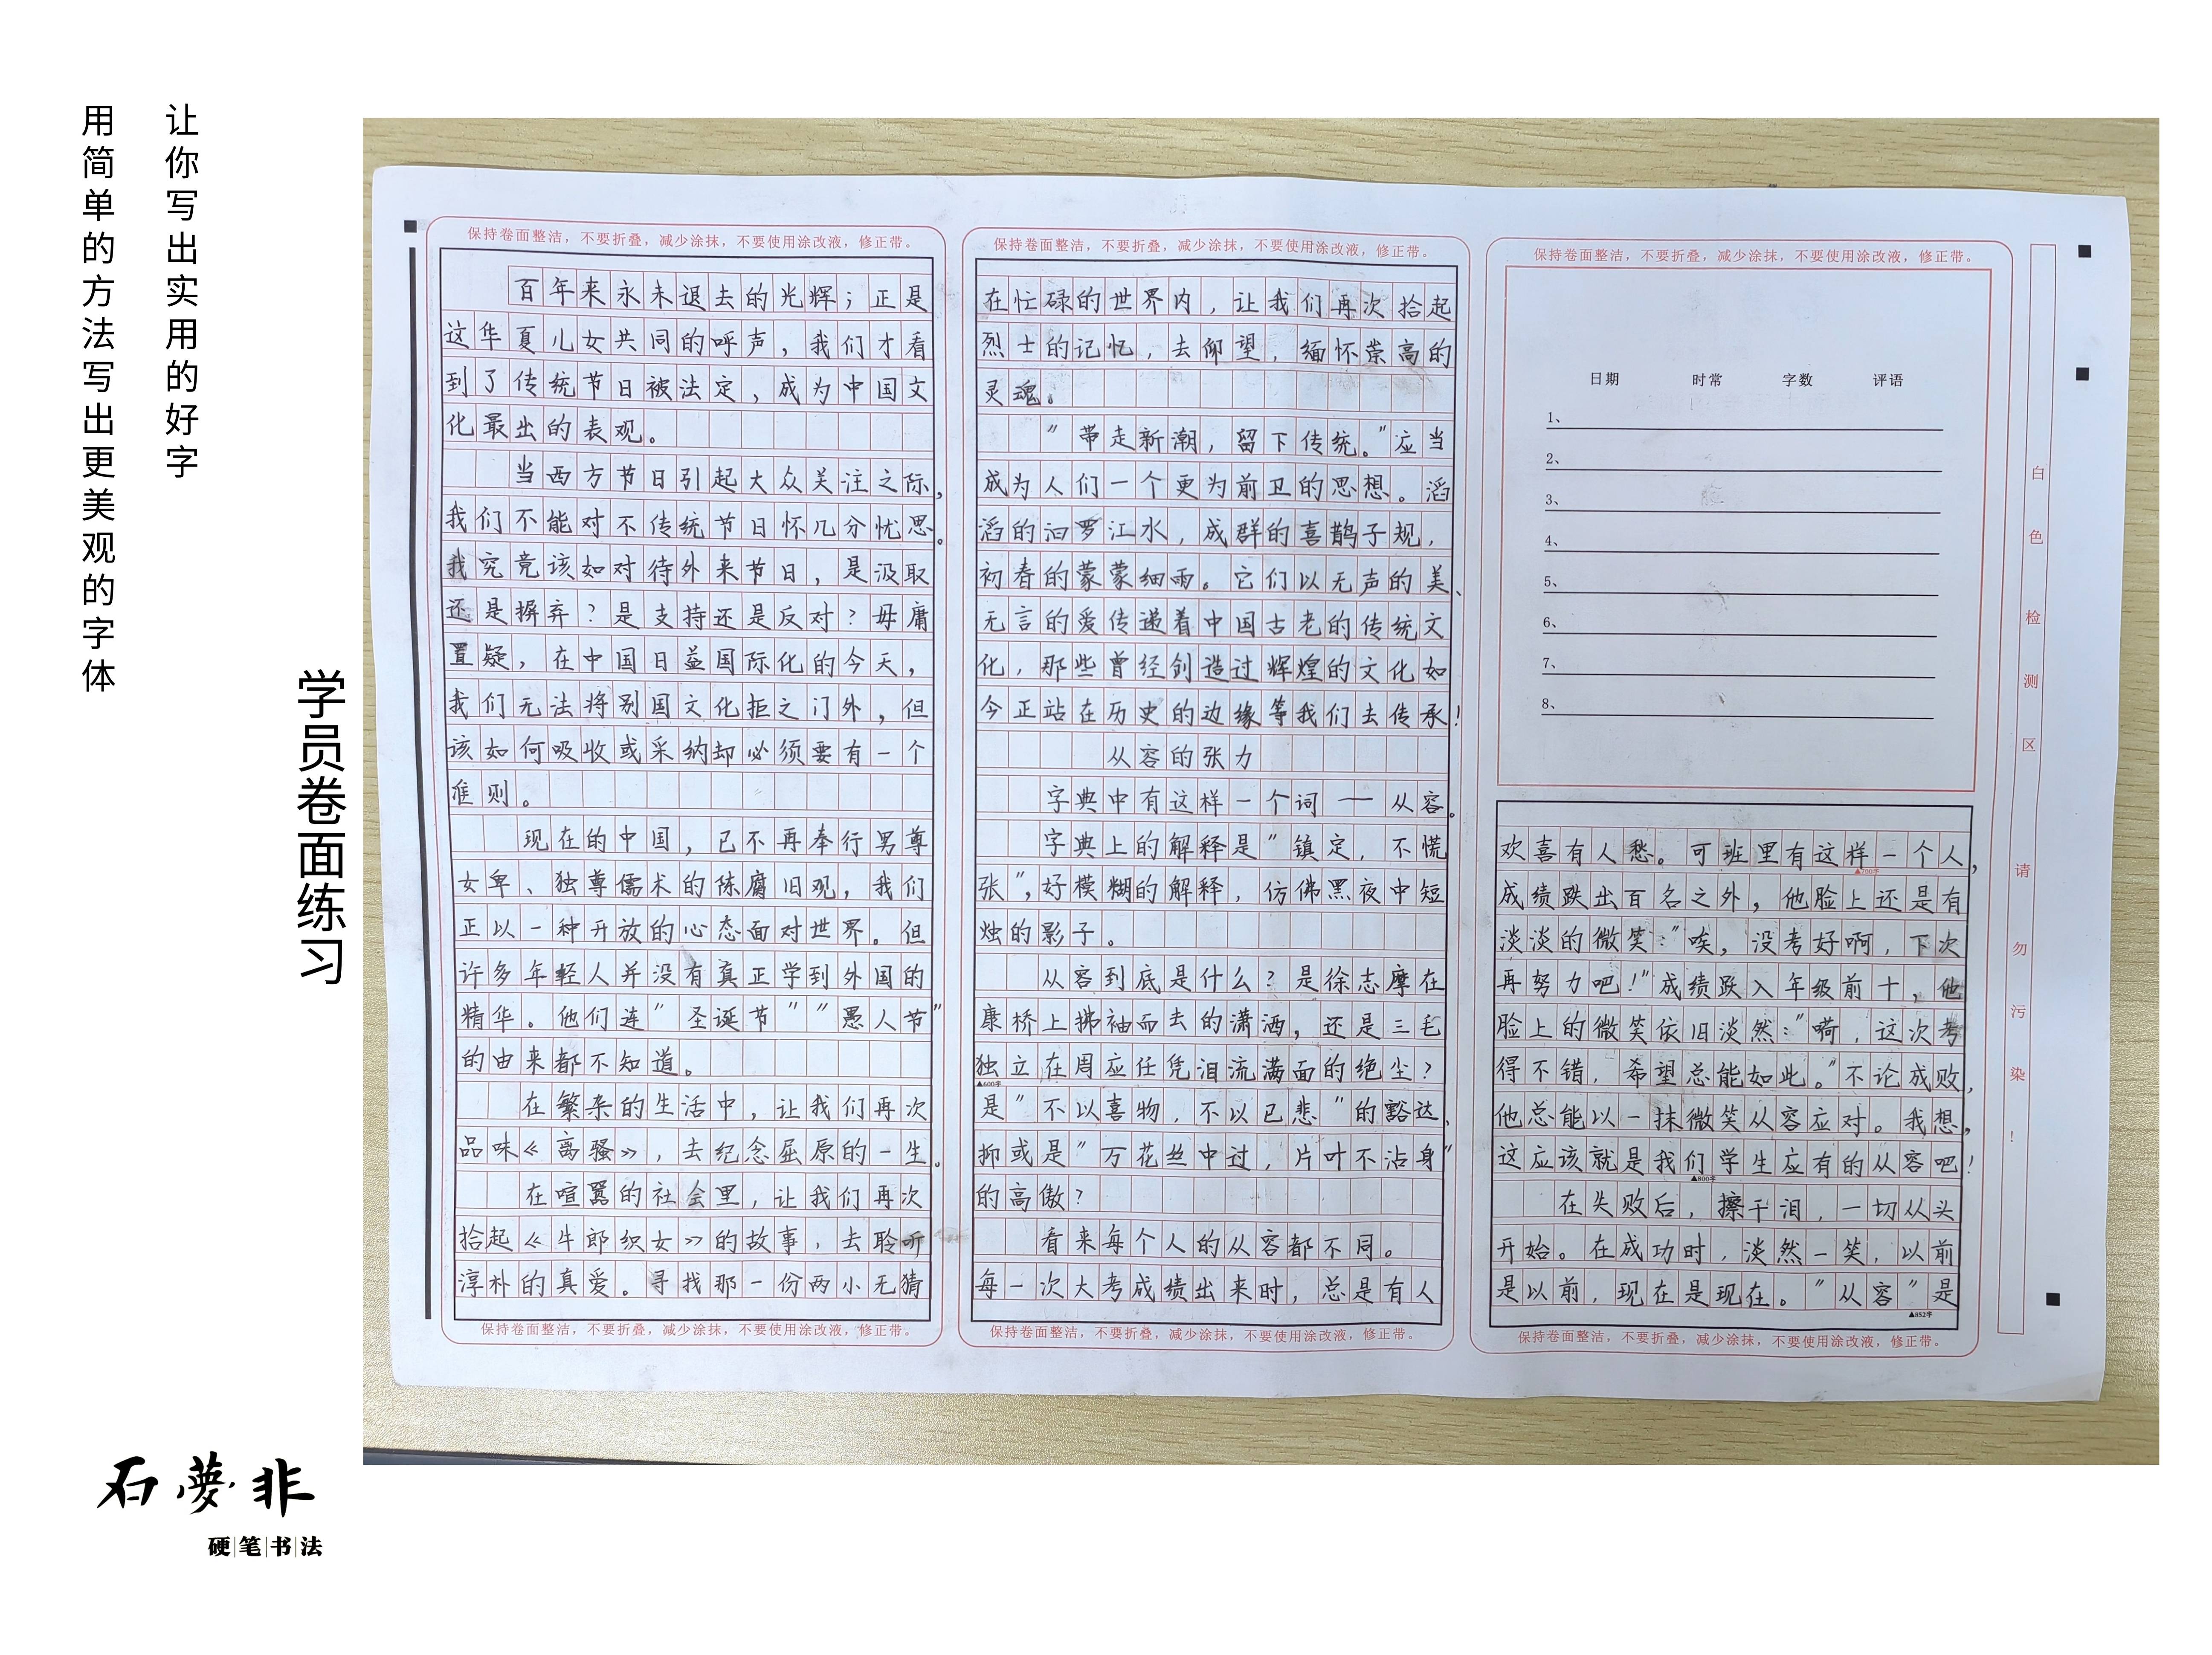 让你写出实用的好字
用简单的方法写出更美观的字体
学员卷面练习
石夢非
硬笔书法
保持卷面整洁，不要折叠，减少涂抹，不要使用涂改液，修正带。
百年来永未退去的光辉；正是
这华夏儿女共同的呼声，我们才看
到了传统节日被法定，成为中国文
化最出的表观。
当西方节日引起大众关注之际，
我们不能对不传统节日怀几分忧思。
我究竟该如对待外来节日，是汲取
还是摒弃？是支持还是反对？毋庸
置疑，在中国日益国际化的今天，
我们无法将别国文化拒之门外，但
该如何吸收或采纳却必须要有一个
准则。
现在的中国，已不再奉行男尊
女卑、独尊儒术的陈腐旧观，我们
正以一种开放的心态面对世界。但
许多年轻人并没有真正学到外国的
精华。他们连“圣诞节”“愚人节”
的由来都不知道。
在繁杂的生活中，让我们再次
品味《离骚》，去纪念屈原的一生。
在喧嚣的社会里，让我们再次
拾起《牛郎织女》的故事，去聆听
淳朴的真爱。寻找那一份两小无猜
保持卷面整洁，不要折叠，减少涂抹，不要使用涂改液，修正带。
保持卷面整洁，不要折叠，减少涂抹，不要使用涂改液，修正带。
在忙碌的世界内，让我们再次拾起
烈士的记忆，去仰望，缅怀崇高的
灵魂。
“带走新潮，留下传统。”应当
成为人们一个更为前卫的思想。滔
滔的汨罗江水，成群的喜鹊子规，
初春的蒙蒙细雨。它们以无声的美、
无言的爱传递着中国古老的传统文
化，那些曾经创造过辉煌的文化如
今正站在历史的边缘等我们去传承！
从容的张力
字典中有这样一个词——从容。
字典上的解释是“镇定，不慌
张”，好模糊的解释，仿佛黑夜中短
烛的影子。
从容到底是什么？是徐志摩在
康桥上拂袖而去的潇洒，还是三毛
独立在周应任凭泪流满面的绝尘？
▲600字
是“不以喜物，不以已悲”的豁达、
抑或是“万花丝中过，片叶不沾身”
的高傲？
看来每个人的从容都不同。
每一次大考成绩出来时，总是有人
保持卷面整洁，不要折叠，减少涂抹，不要使用涂改液，修正带。
保持卷面整洁，不要折叠，减少涂抹，不要使用涂改液，修正带。
日期 时常 字数 评语
1、
2、
3、
4、
5、
6、
7、
8、
欢喜有人愁。可班里有这样一个人，
▲700字
成绩跌出百名之外，他脸上还是有
淡淡的微笑：“唉，没考好啊，下次
再努力吧！”成绩跃入年级前十，他
脸上的微笑依旧淡然：“嗬，这次考
得不错，希望总能如此。”不论成败，
他总能以一抹微笑从容应对。我想，
这应该就是我们学生应有的从容吧！
▲800字
在失败后，擦干泪，一切从头
开始。在成功时，淡然一笑，以前
是以前，现在是现在。“从容”是
▲852字
保持卷面整洁，不要折叠，减少涂抹，不要使用涂改液，修正带。
白色检测区 请勿污染！